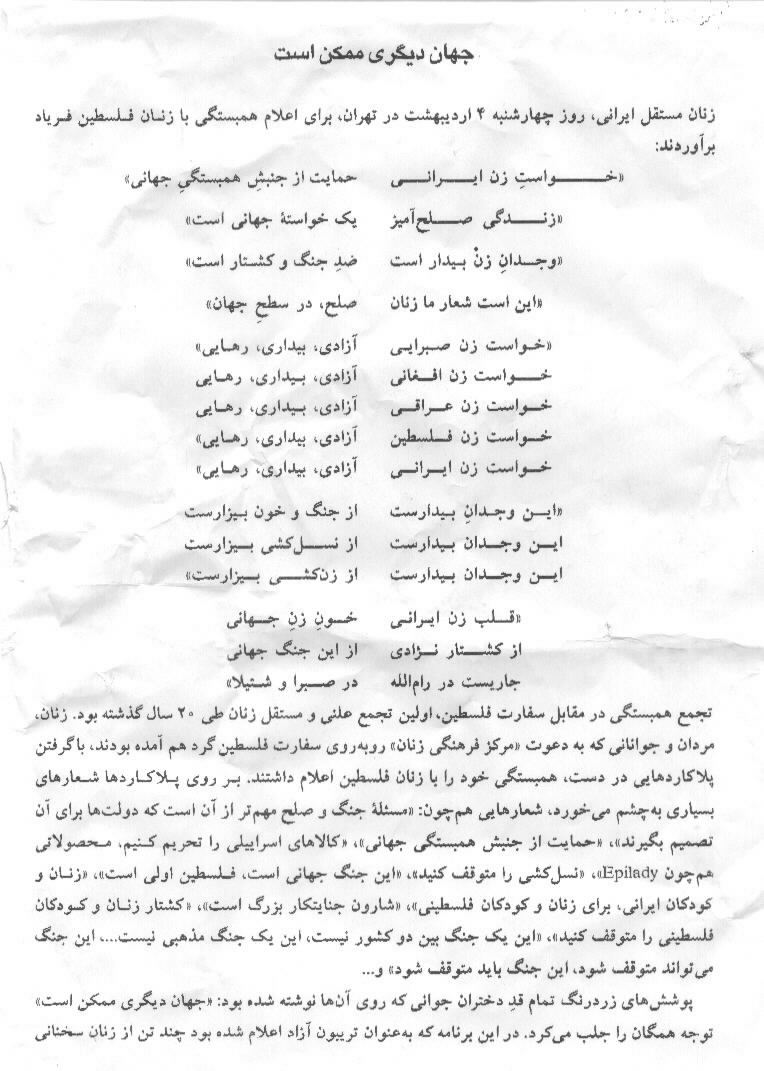 جهان دیگری ممکن است
زنان مستقل ایرانی، روز چهارشنبه ۴ اردیبهشت در تهران، برای اعلام همبستگی با زنان فلسطین فریاد
برآوردند:
«خواستِ زن ایرانی حمایت از جنبشِ همبستگیِ جهانی»
«زندگی صلح‌آمیز یک خواستهٔ جهانی است»
«وجدانِ زنْ بیدار است ضدِ جنگ و کشتار است»
«این است شعار ما زنان صلح، در سطحِ جهان»
«خواست زن صبرایی آزادی، بیداری، رهایی»
خواست زن افغانی آزادی، بیداری، رهایی
خواست زن عراقی آزادی، بیداری، رهایی
خواست زن فلسطین آزادی، بیداری، رهایی»
خواست زن ایرانی آزادی، بیداری، رهایی»
«این وجدانِ بیدارست از جنگ و خون بیزارست
این وجدان بیدارست از نسل‌کشی بیزارست
این وجدان بیدارست از زن‌کشی بیزارست»
«قلب زن ایرانی خونِ زنِ جهانی
از کشتار نژادی از این جنگ جهانی
جاریست در رام‌الله در صبرا و شتیلا»
تجمع همبستگی در مقابل سفارت فلسطین، اولین تجمع علنی و مستقل زنان طی ۲۰ سال گذشته بود. زنان،
مردان و جوانانی که به دعوت «مرکز فرهنگی زنان» روبه‌روی سفارت فلسطین گرد هم آمده بودند، با گرفتن
پلاکاردهایی در دست، همبستگی خود را با زنان فلسطین اعلام داشتند. بر روی پلاکاردها شعارهای
بسیاری به‌چشم می‌خورد، شعارهایی هم‌چون: «مسئلهٔ جنگ و صلح مهم‌تر از آن است که دولت‌ها برای آن
تصمیم بگیرند»، «حمایت از جنبش همبستگی جهانی»، «کالاهای اسراییلی را تحریم کنیم، محصولاتی
هم‌چون Epilady»، «نسل‌کشی را متوقف کنید»، «این جنگ جهانی است، فلسطین اولی است»، «زنان و
کودکان ایرانی، برای زنان و کودکان فلسطینی»، «شارون جنایتکار بزرگ است»، «کشتار زنان و کودکان
فلسطینی را متوقف کنید»، «این یک جنگ بین دو کشور نیست، این یک جنگ مذهبی نیست...، این جنگ
می‌تواند متوقف شود، این جنگ باید متوقف شود» و...
پوشش‌های زردرنگ تمام قدِ دختران جوانی که روی آن‌ها نوشته شده بود: «جهان دیگری ممکن است»
توجه همگان را جلب می‌کرد. در این برنامه که به‌عنوان تریبون آزاد اعلام شده بود چند تن از زنان سخنانی